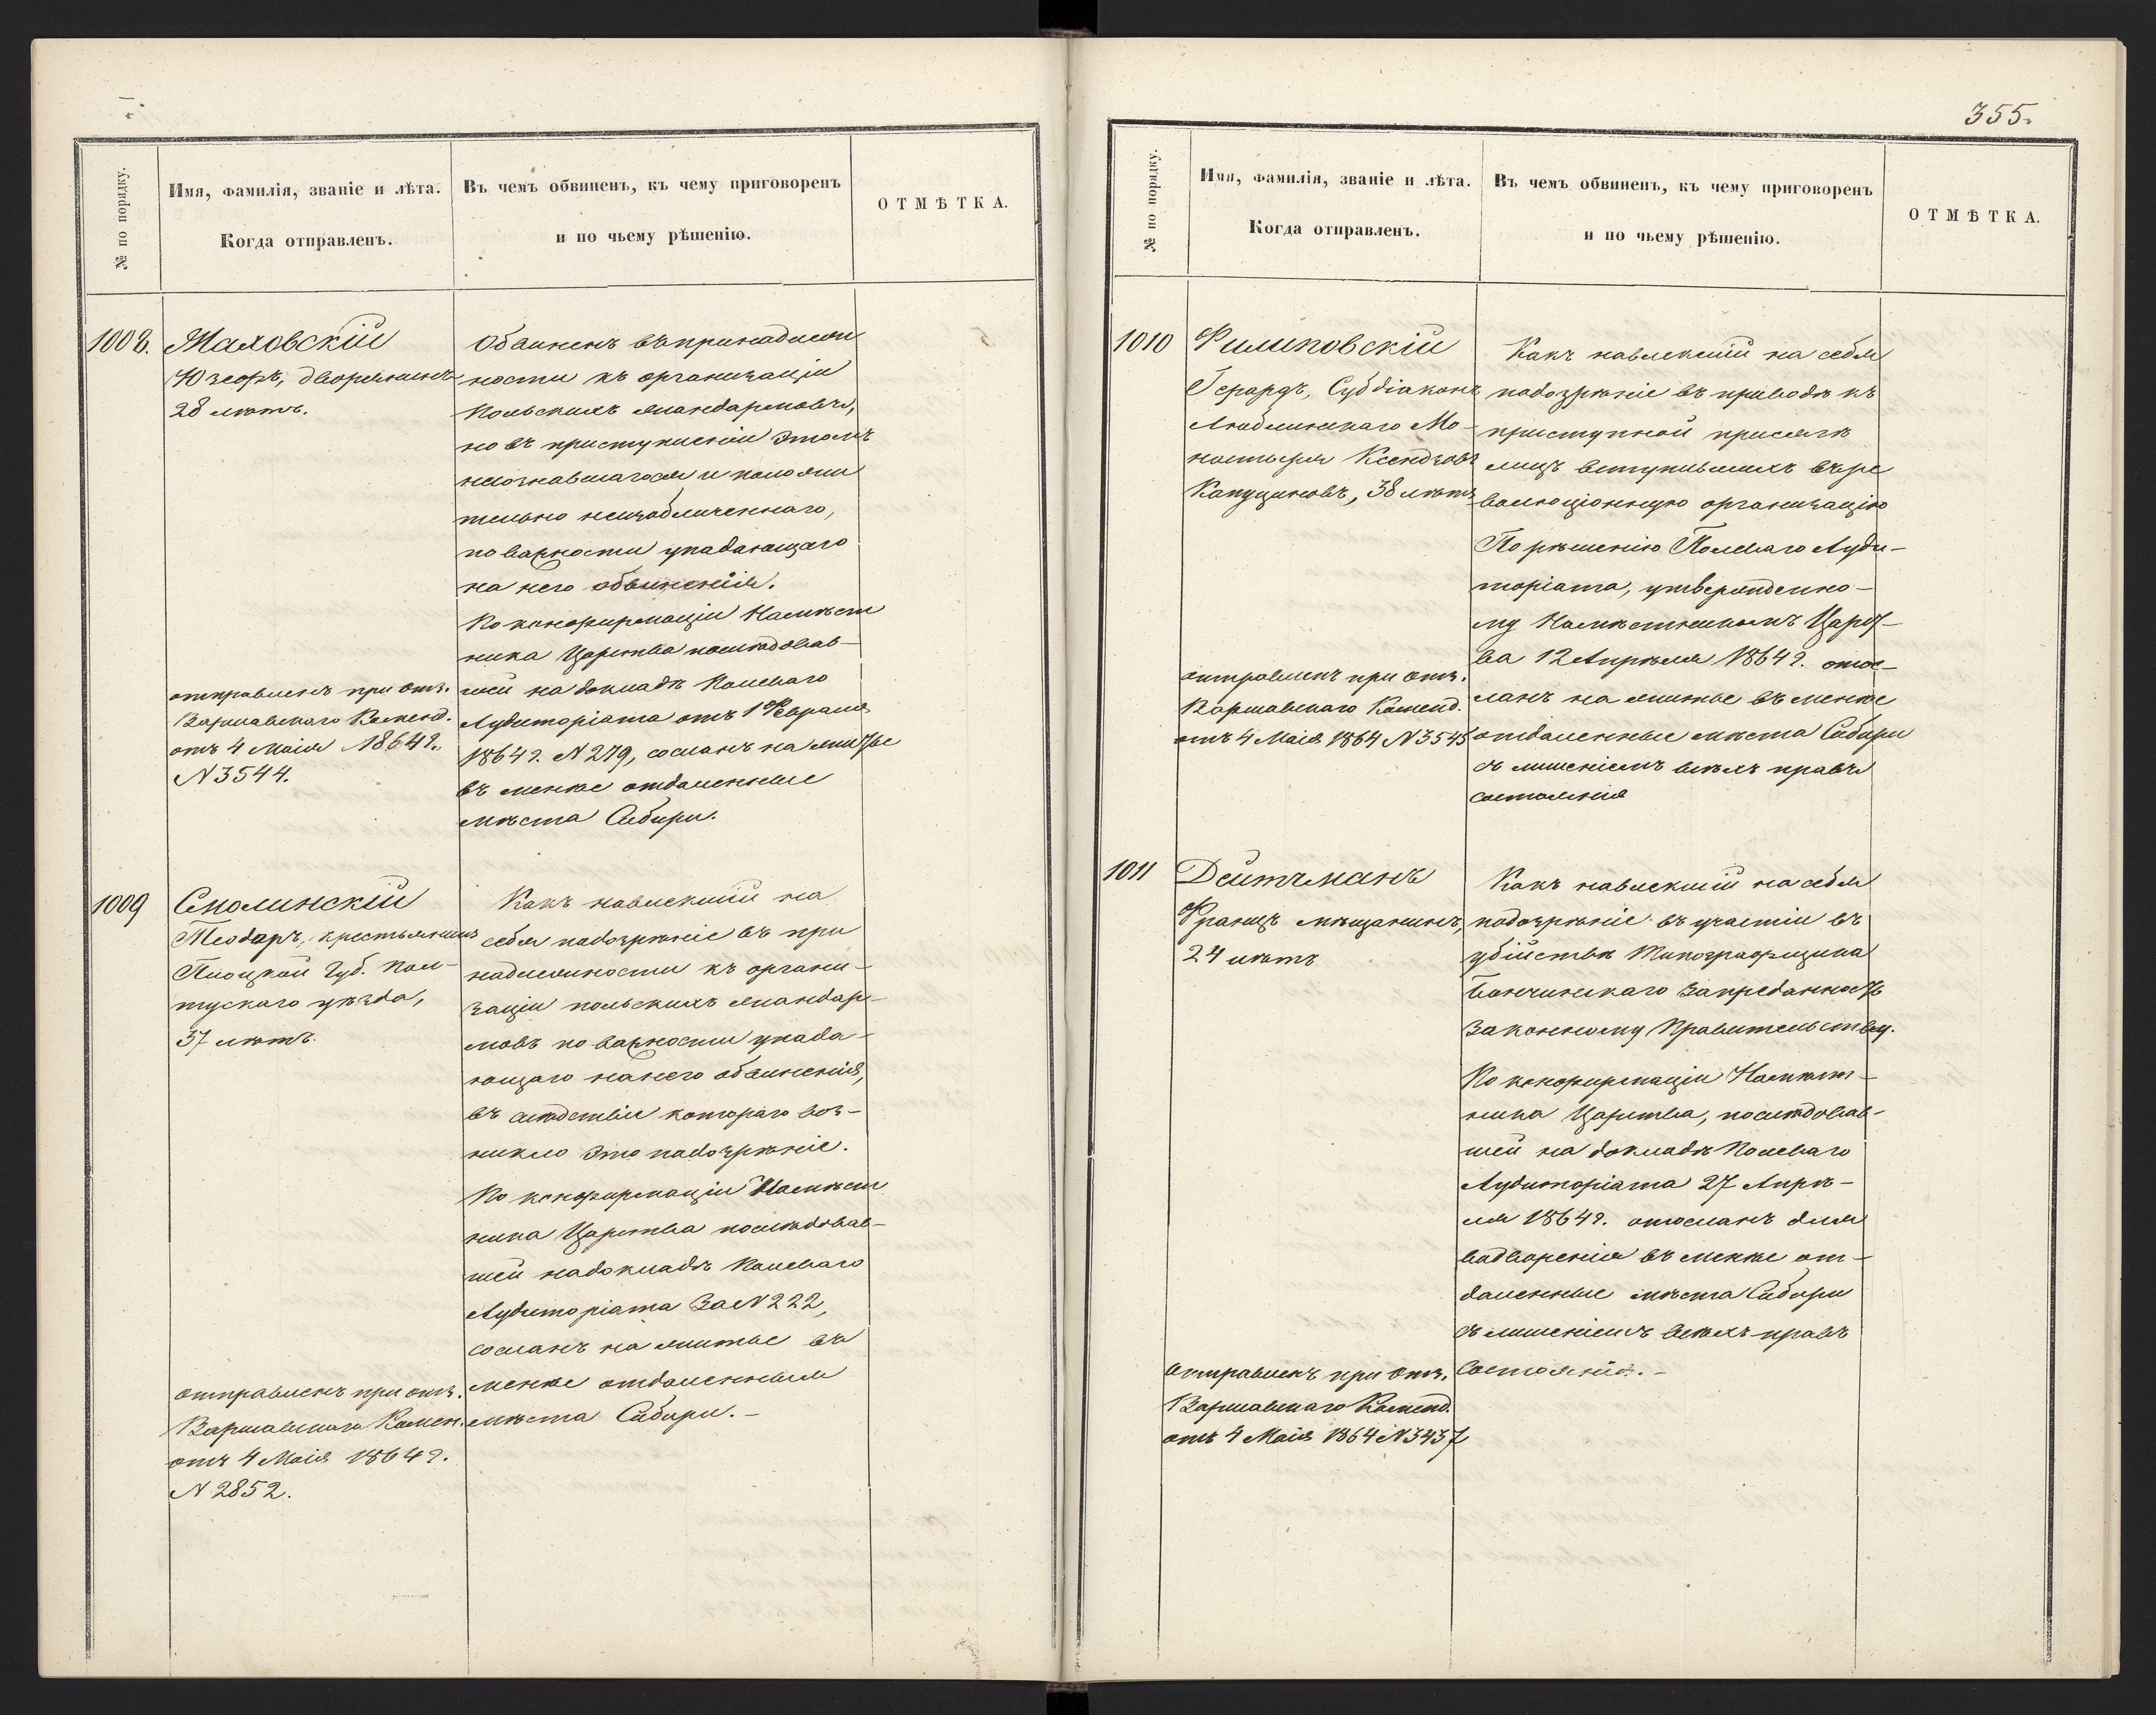 355.
№ по порядку.
Имя, фамилія, званіе и лѣта.
Когда отправленъ.
Въ чемъ обвиненъ, къ чему приговоренъ
и по чьему рѣшенію.
ОТМѢТКА.
1008.
Маховскій
Юзефъ, дворянинъ
28 лѣтъ.
отправленъ при отз.
Варшавскаго Коменд.
отъ 4 Маія 1864 г.
N 3544.
Обвиненъ въ принадлеж
ности къ организаціи
Польскихъ жандармовъ,
но въ приступленіи этомъ
несознавшагося и положи
тельно неизобличеннаго,
по важности упадающаго
на него обвиненія.
По конфирмаціи Намѣст
ника Царства послѣдовав-
шей на докладѣ Полеваго
Аудиторіата отъ 1 Февраля
1864 г. N 279, сосланъ на житье
въ менѣе отдаленные
мѣста Сибири.
1009
Смолинскій
Теодоръ, крестьянинъ
Плоцкой Губ. Пул-
тускаго уѣзда,
37 лѣтъ.
отправленъ при отз.
Варшавскаго Комен.
отъ 4 Маія 1864 г.
N 2852.
Какъ навлекшій на
себя подозрѣніе въ при
надлежности къ органи-
заціи польскихъ жандар-
мовъ по важности упада-
ющаго на него обвиненія,
въ слѣдствіи котораго воз-
никло это подозрѣніе.
По конфирмаціи Намѣст
ника Царства послѣдовав-
шей на докладѣ Полеваго
Аудиторіата За N 222,
сосланъ на житье въ
менѣе отдаленныя
мѣста Сибири. -
№ по порядку.
Имя, фамилія, званіе и лѣта.
Когда отправленъ.
Въ чемъ обвиненъ, къ чему приговоренъ
и по чьему рѣшенію.
ОТМѢТКА.
1010
Филиповскій
Герардъ, Субдіаконъ
Люблинскаго Мо-
настыря Ксендзовъ
Капуциновъ, 38 лѣтъ
отправленъ при отз.
Варшавскаго Коменд.
отъ 4 Маія 1864 N 3545
Какъ навлекшій на себя
подозрѣніе въ приводѣ къ
приступной присягѣ
лицъ вступившихъ въ ре
волюціонную организацію
По рѣшенію Полеваго Ауди-
торіата, утвержденно-
му Намѣстникомъ Царст-
ва 12 Апрѣля 1864 г. отос-
ланъ на житье въ менѣе
отдаленные мѣста Сибири
съ лишеніемъ всѣхъ правъ
состоянія
1011
Дейтманъ
Францъ мѣщанинъ,
24 лѣтъ
Отправленъ при отз.
Варшавскаго Коменд.
отъ 4 Маія 1864 N 3437
Какъ навлекшій на себя
подозрѣніе въ участіи въ
убійствѣ Типографщика
За преданность
Законному Правительству.
По конфирмаціи Намѣст-
ника Царства, послѣдовав-
шей на докладѣ Полеваго
Аудиторіата 27 Апрѣ-
ля 1864 г. отосланъ для
водворенія въ менѣе от-
даленные мѣста Сибири
съ лишеніемъ всѣхъ правъ
Состоянія. -